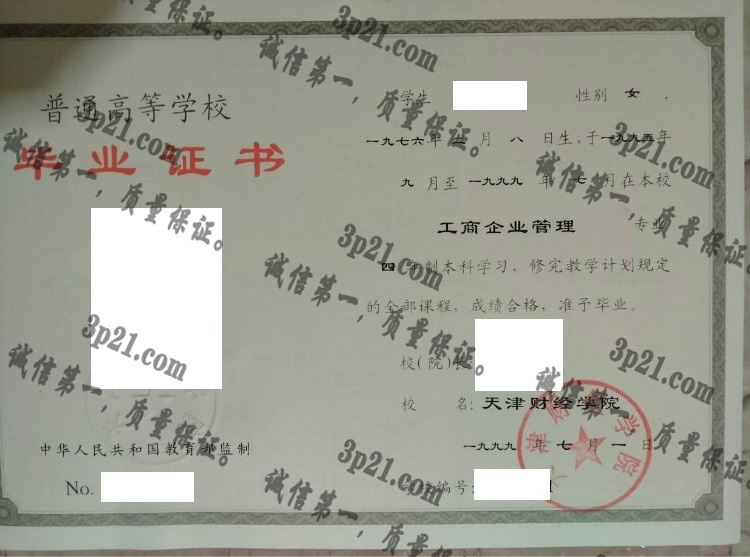 普通高等学校
毕业证书
中华人民共和国教育部监制
No.
学生 性别 女 ，
一九七六年二月 八 日生，于一九九五年
九 月至 一九九九 年 七 月在本校
工商企业管理 专业
四年制本科学习，修完教学计划规定
的全部课程，成绩合格，准予毕业。
校(院)长:
校 名: 天津财经学院
一九九九 年 七 月 一 日
编号:
天津财经学院
3p21.com
诚信第一，质量保证。
3p21.com
诚信第一，质量保证。
3p21.com
诚信第一，质量保证。
3p21.com
诚信第一，质量保证。
3p21.com
诚信第一，质量保证。
3p21.com
诚信第一，质量保证。
3p21.com
诚信第一，质量保证。